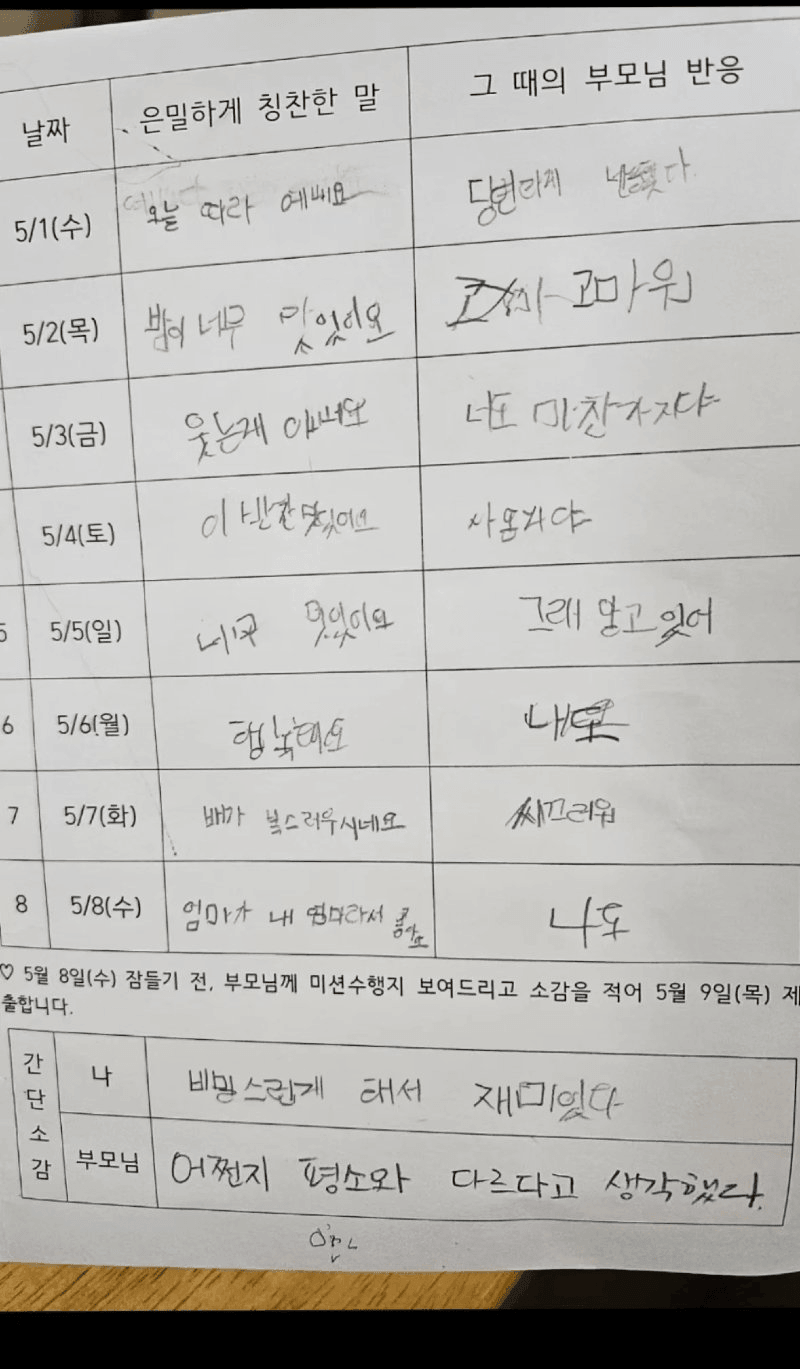 날짜 은밀하게 칭찬한 말 그 때의 부모님 반응
5/1(수) 오늘 따라 예뻐요
5/2(목) 밥이 너무 맛있어요 고마워
5/3(금) 웃는게 너도 마찬가지야
5/4(토) 이 반찬 맛있어요
5 5/5(일) 너무 멋있어요 그래 알고 있어
6 5/6(월) 행복해요 나도
7 5/7(화) 배가 복스러우시네요 씨끄러워
8 5/8(수) 엄마가 내 엄마라서 좋아요 나도
♡ 5월 8일(수) 잠들기 전, 부모님께 미션수행지 보여드리고 소감을 적어 5월 9일(목) 제
출합니다.
간단소감
나 비밍스런게 태서 재미있다
부모님 어쩐지 평소와 다르다고 생각했다.